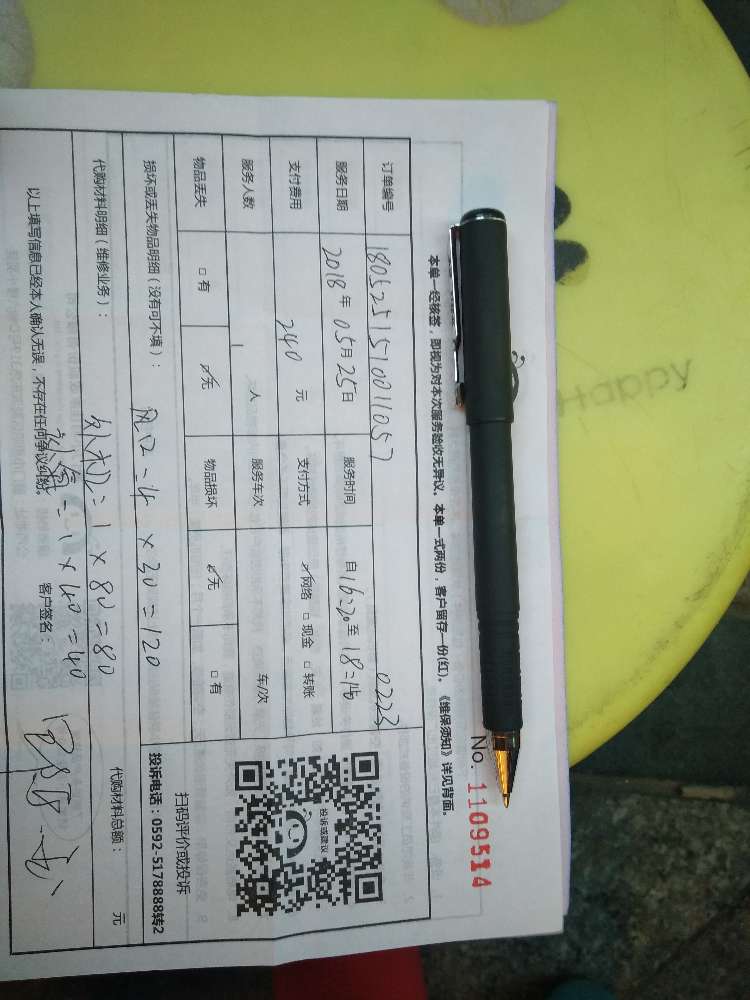 Happy
No. 1109514
本单一经核签，即视为对本次服务验收无异议。本单一式两份，客户留存一份(红)。《维保须知》详见背面。
订单编号 180525151001105７ 0223
服务日期 2018年05月25日 服务时间 自16:20至18:16
支付费用 240 元 支付方式 ☑网络 □现金 □转账
服务人数 1 人 服务车次 车/次
物品丢失 □有 ☑无 物品损坏 ☑无 □有
投诉或建议
扫码评价或投诉
投诉电话：0592-5178888转2
损坏或丢失物品明细（没有可不填）： 风口=4×30=120
代购材料明细（维修业务）： 外机=1×80=80 代购材料总额： 元
=1×40=40
以上填写信息已经本人确认无误，不存在任何争议纠纷。 客户签名：